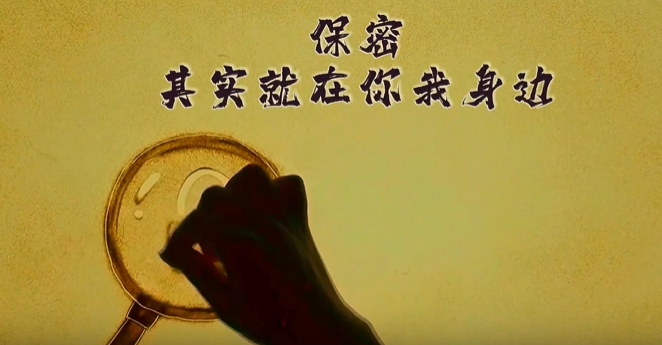 保密
其实就在你我身边